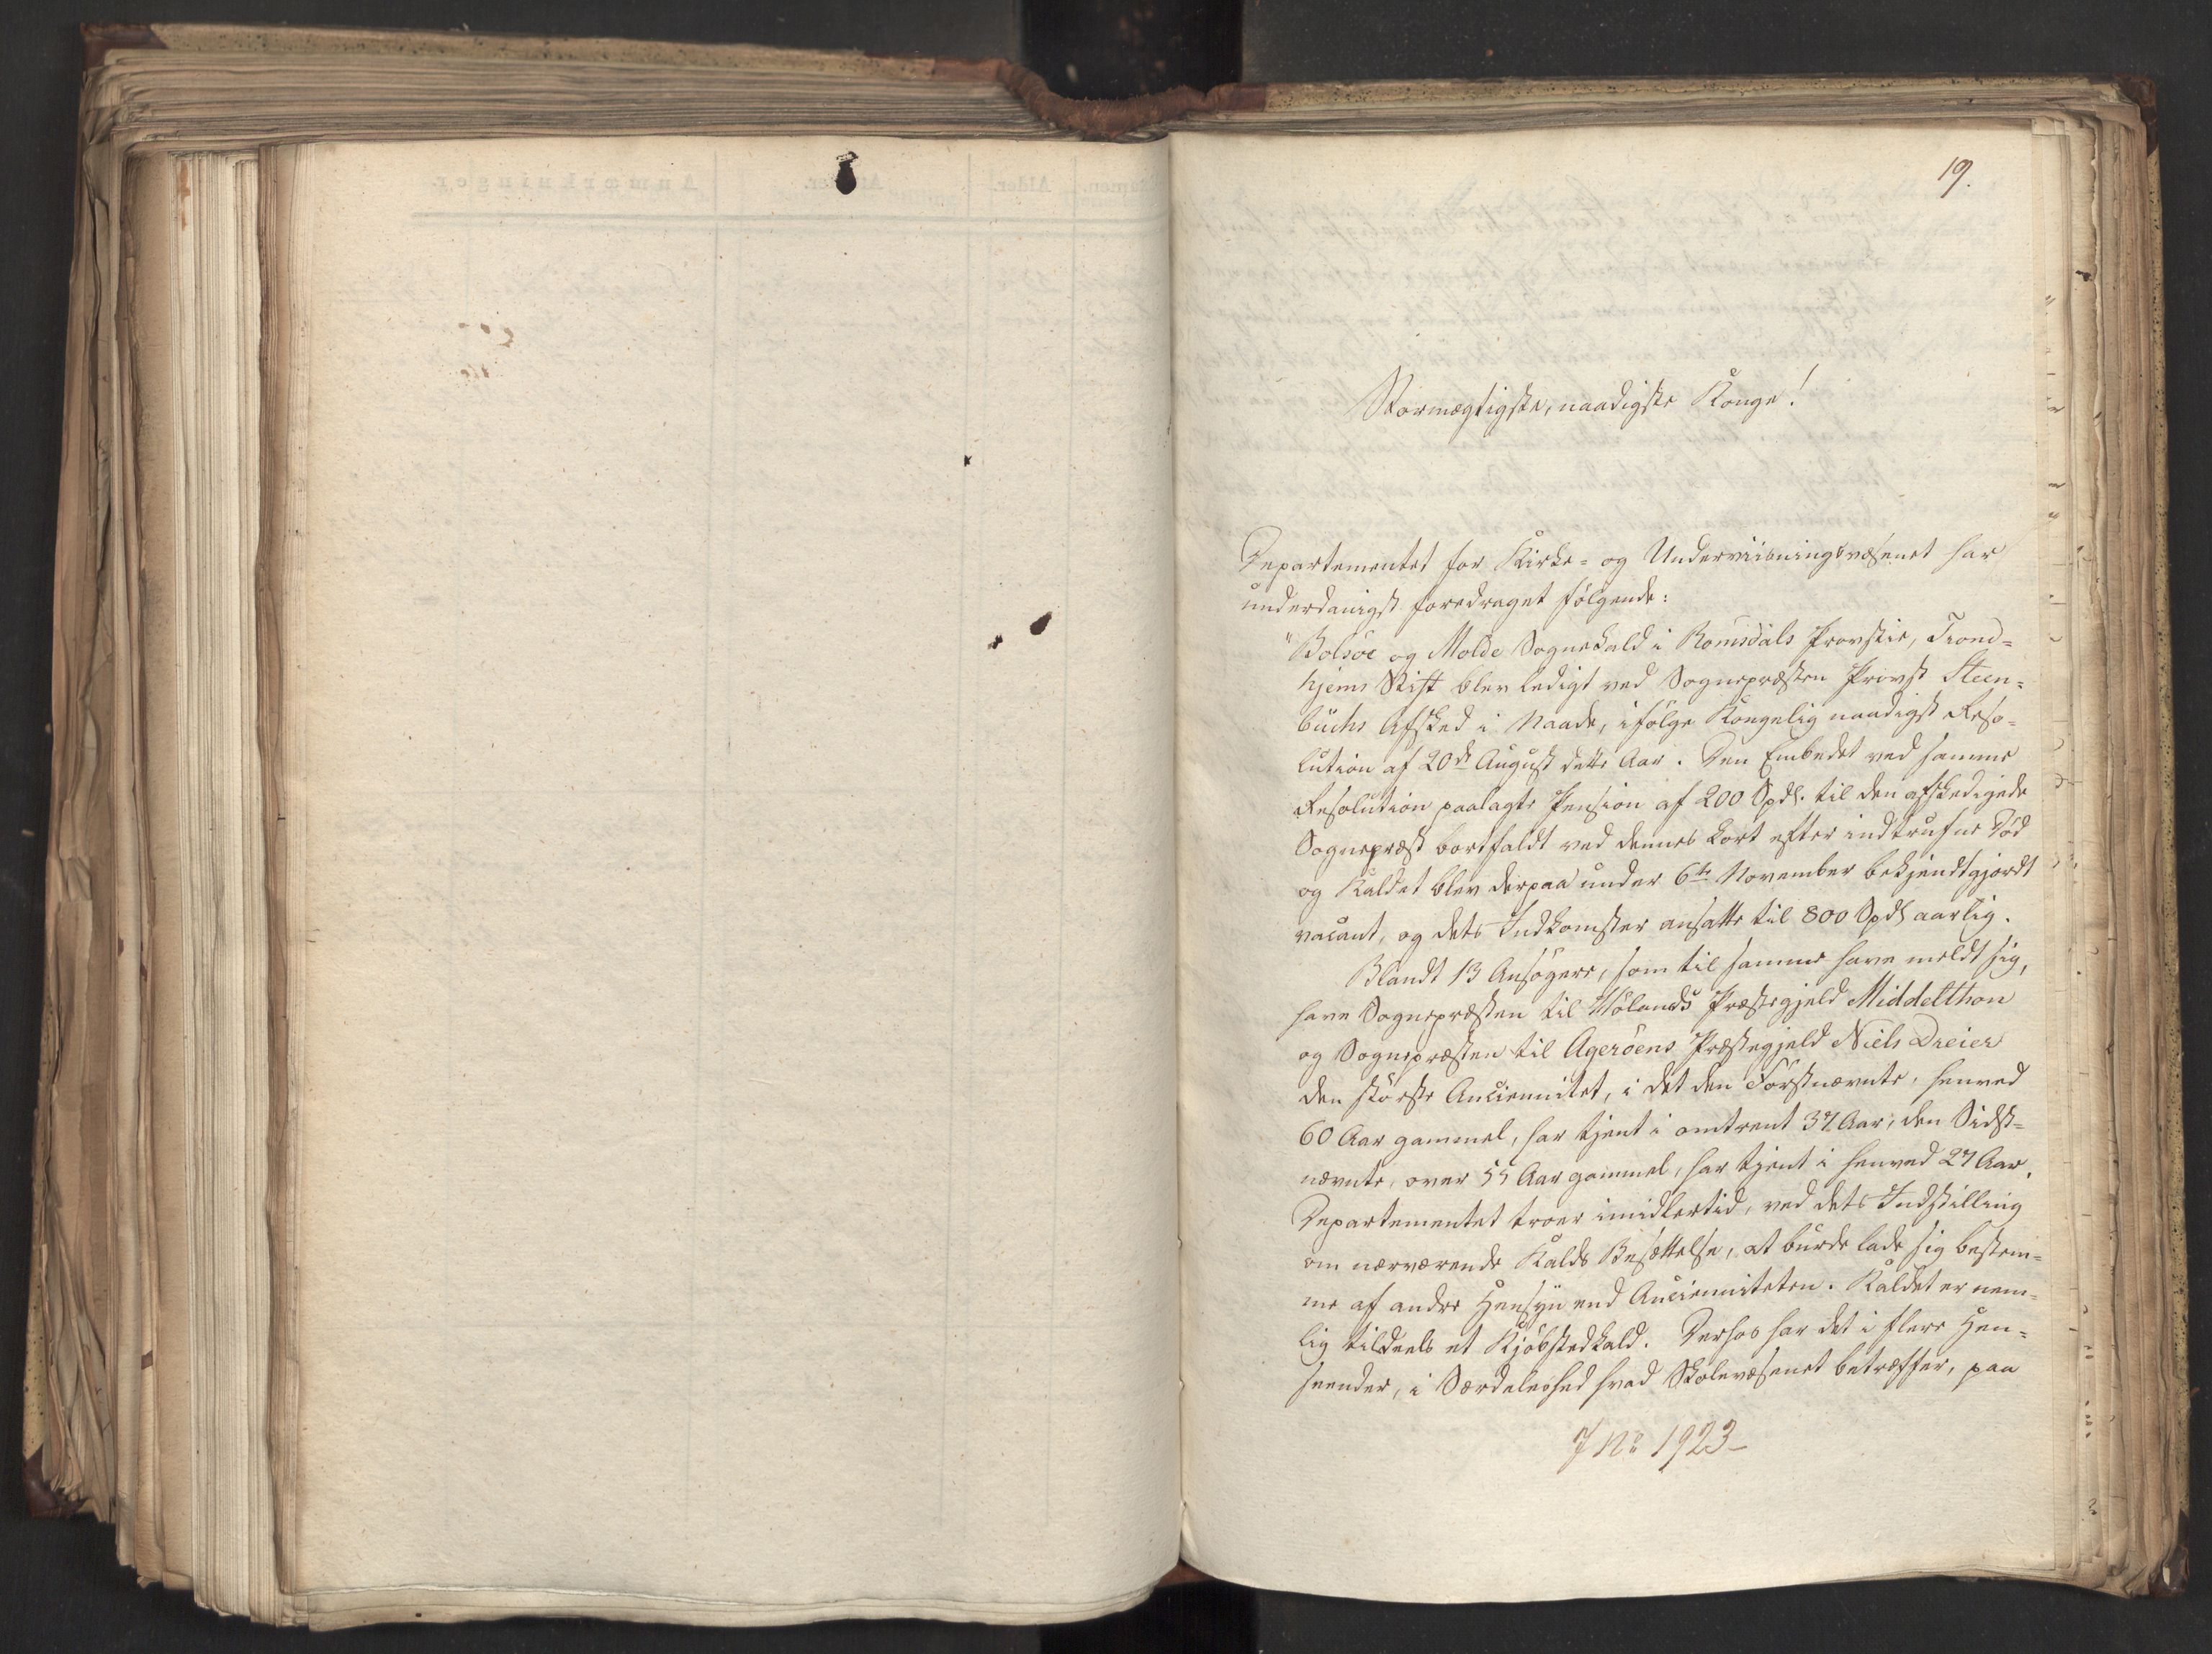 19.
Stormægtigste, naadigste Konge!
Departementet for Kirke- og Underviisningsvæsenet har
underdanigst foredraget følgende:
"Bolsöe og Molde Sognekald i Romsdals Provstie, Trond=
hjems Stift blev ledigt ved Sognepræsten Provst Steen=
buchs Afsked i Naade, ifölge Kongelig naadigst Reso=
lution af 20de August dette Aar. Den Embedet ved samme
Resolution paalagte Pension af 200 Spdl. til den afskedigede
Sognepræst bortfaldt ved dennes kort efter indtrufne Död
og Kaldet blev derpaa under 6te November bekjendtgjordt
vacant, og dets Indkomster ansatte til 800 Spdl aarlig.
Blandt 13 Ansögere, som til samme have meldt sig,
have Sognepræsten til Hölands Præstegjeld Middelthon
og Sognepræsten til Ageröens Præstegjeld Niels Dreier
den störste Anciennitet, i det den Förstnævnte, henved
60 Aar gammel, har tjent i omtrent 37 Aar; den Sidst=
nævnte, over 55 Aar gammel, har tjent i henved 27 Aar.
Departementet troer imidlertid, ved dets Indstilling
om nærværende Kalds Besættelse, at burde lade sig bestem=
me af andre Hensyn end Ancienniteten. Kaldet er nem=
lig tildeels et Kjöbstedkald. Derhos har det i flere Hen=
seender, i Særdeleshed hvad Skolevæsenet betræffer, paa
7 No 1923
Anmærkninger.
Alder.